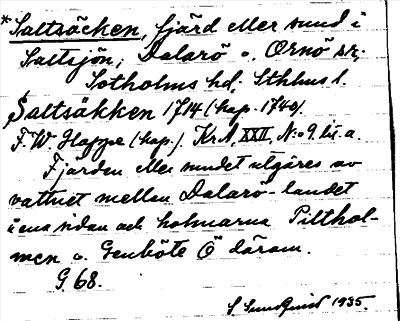 * Saltsäcken, fjärd eller sund i
Saltsjön, Dalarö o. Ornö sr;
Sotholms hd; Sthlms l.
Saltsäkken 1714 (kap. 1740).
F. W. Happe (kap.). Kr A, XXII, N:o 9. lit. a.
Fjärden eller sundet utgöres av
vattnet mellan Dalarö-landet
i ena sidan och holmarna Pilthol-
men o. Genböte Ö därom.
G 68.
S Sundqvist 1935.